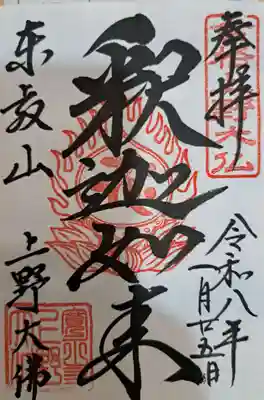 奉拝
令和八年
一月廿五日
釈迦如来
东叡山
上野大佛